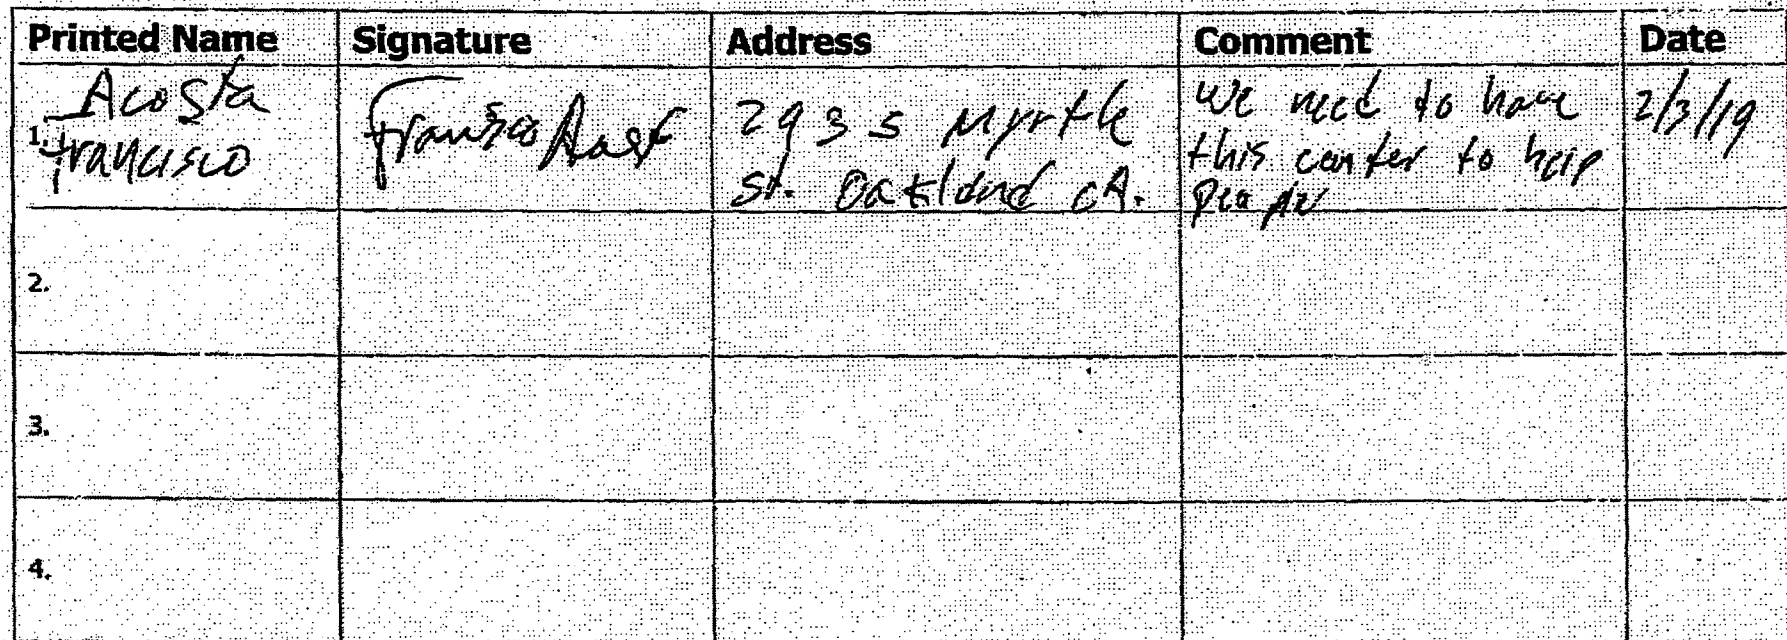 Printed Name Signature Address Comment Date
1. Acosta
Francisco
Fransco Aast
2935 Myrtle
st. Oakland CA.
We need to have
this canter to help
people
2/3/19
2.
3.
4.